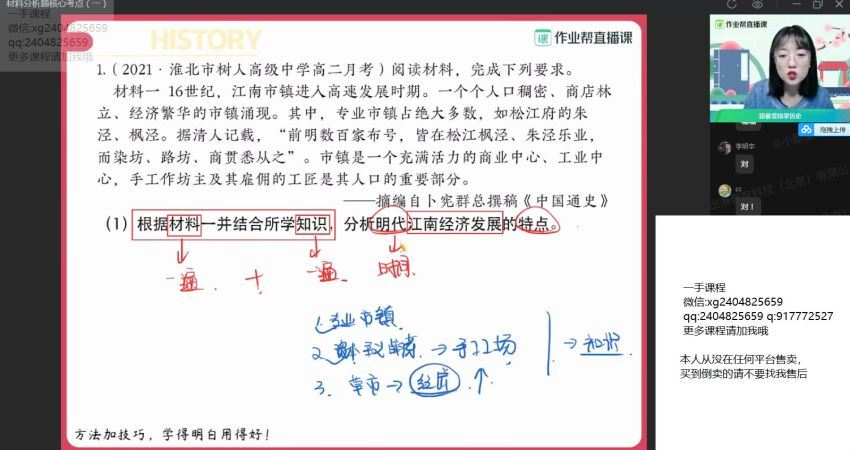 材料分析题核心考点（一）
一手课程
微信:xg2404825659
qq:2404825659
更多课程请加我哦
HISTORY
作业帮直播课
1.（2021·淮北市树人高级中学高二月考）阅读材料，完成下列要求。
材料一 16世纪，江南市镇进入高速发展时期。一个个人口稠密、商店林
立、经济繁华的市镇涌现。其中，专业市镇占绝大多数，如松江府的朱
泾、枫泾。据清人记载，“前明数百家布号，皆在松江枫泾、朱泾乐业，
而染坊、踹坊、商贾悉从之”。市镇是一个充满活力的商业中心、工业中
心，手工作坊主及其雇佣的工匠是其人口的重要部分。
——摘编自卜宪群总撰稿《中国通史》
（1）根据材料一并结合所学知识，分析明代江南经济发展的特点。
一遍 + 一遍 时间
1.专业市镇
2.资本主义萌芽→手工工场 →知识
3.草市→经席↑
方法加技巧，学得明白用得好！
跟着雯综学历史
拖拽上传
对
李明宇
对
cc
对
一手课程
微信:xg2404825659
qq:2404825659 q:917772527
更多课程请加我哦
本人从没在任何平台售卖，
买到倒卖的请不要找我售后